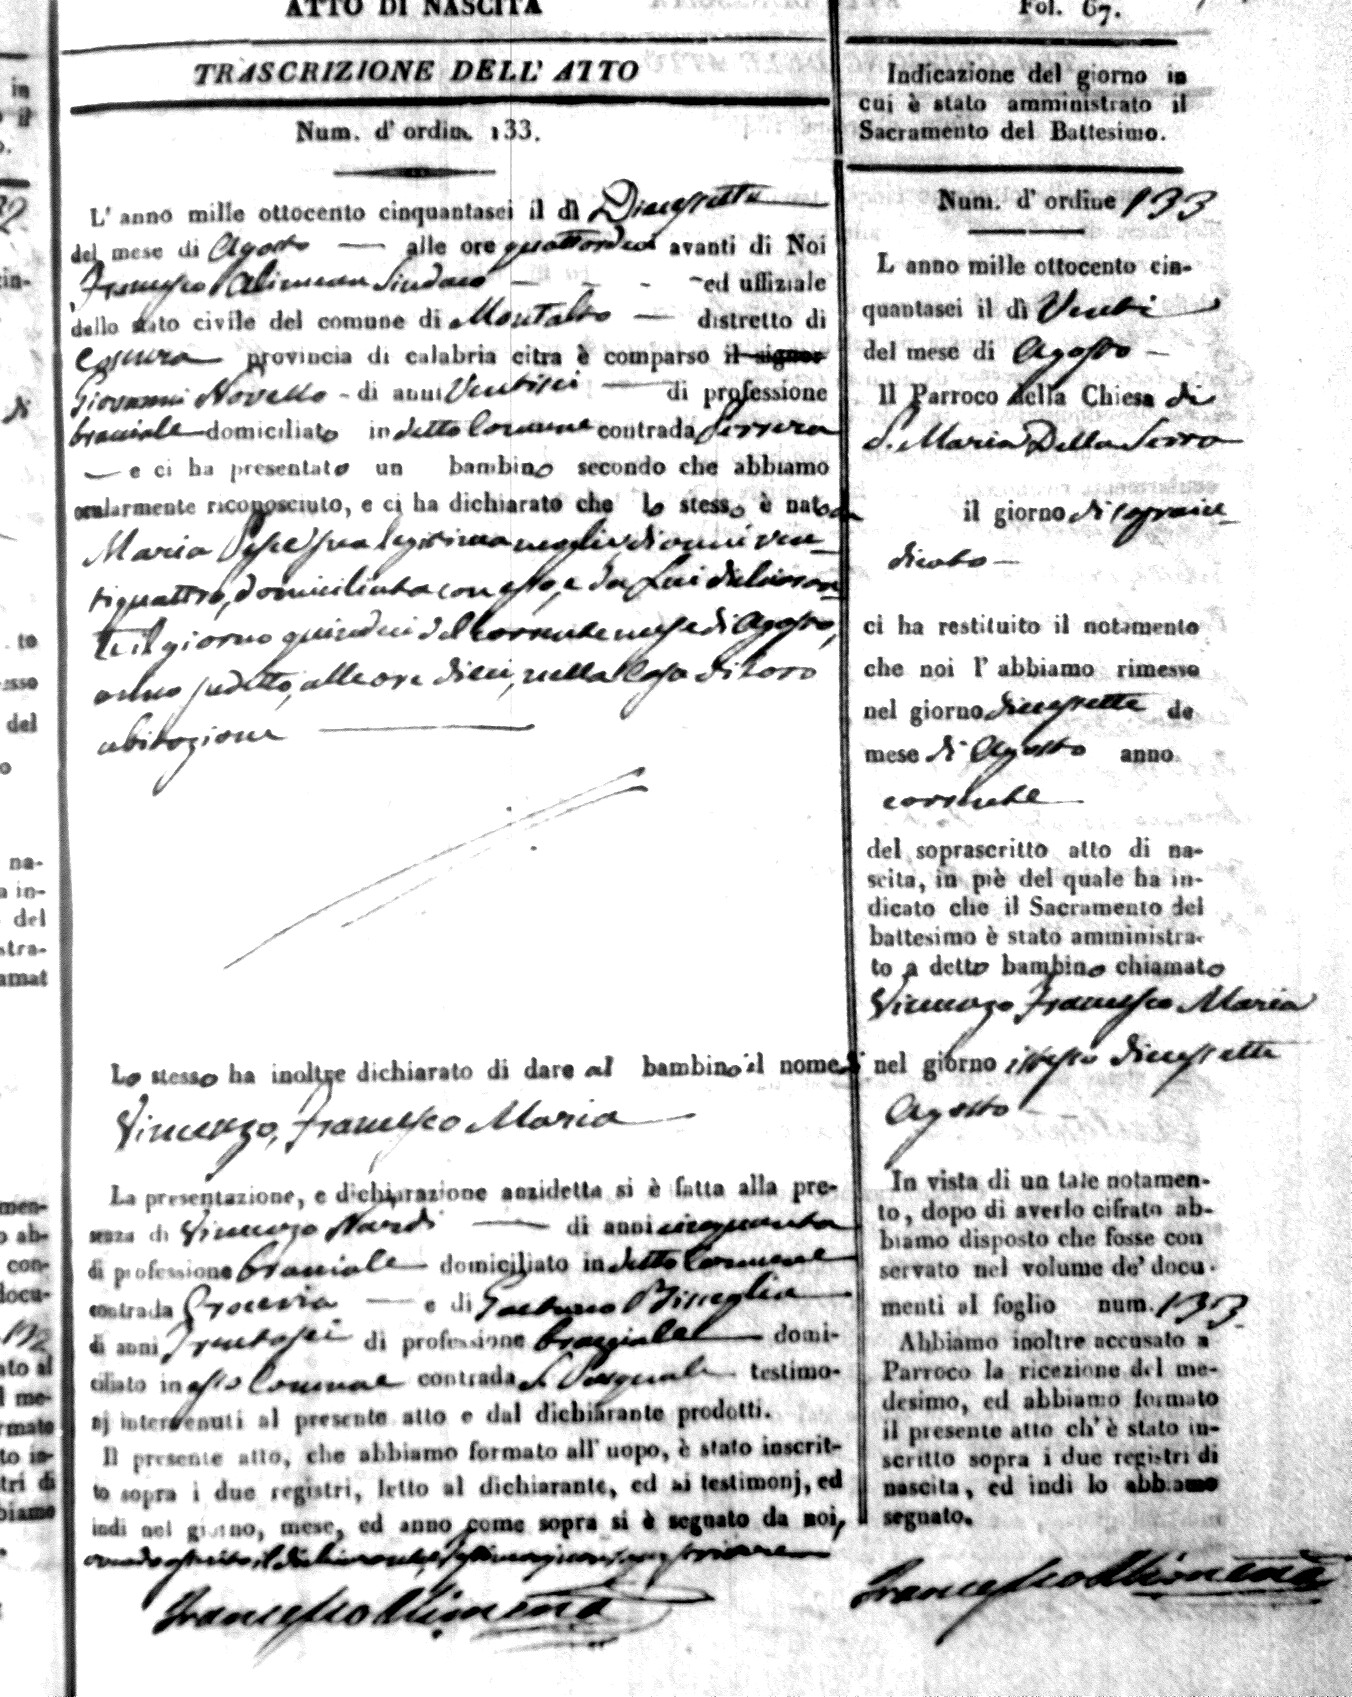 ATTO DI NASCITA
TRASCRIZIONE DELL' ATTO
Num. d' ordin. 133.
L' anno mille ottocento cinquantasei il dì Diecessette
del mese di Agosto — alle ore quattordeci avanti di Noi
Francesco Alimena Sindaco — ed uffiziale
dello stato civile del comune di Montalto — distretto di
Cosenza provincia di calabria citra è comparso il signor
Giovanni Novello - di anni Ventisei — di professione
bracciale domiciliato in detto Comune contrada
— e ci ha presentato un bambino secondo che abbiamo
ocularmente riconosciuto, e ci ha dichiarato che lo stesso è nato da
Maria Pesce sua legitima moglie, di anni ven-
tiquattro, domiciliata con esso, e da Lui dichiaran
te il giorno quindeci del corrente mese di Agosto,
anno sudetto, alle ore dieci, nella Casa di loro
abitazione —
Lo stesso ha inoltre dichiarato di dare al bambino il nome di
Vincenzo, Francesco Maria —
La presentazione, e dichiarazione anzidetta si è fatta alla pre-
senza di Vincenzo Nardi — di anni cinquanta
di professione bracciale domiciliato in detto Comune
contrada — e di Gaetano Bisceglia
di anni Trentasei di professione bracciale domi-
ciliato in esso Comune contrada S. Pasquale testimo-
nj intervenuti al presente atto e dal dichiarante prodotti.
Il presente atto, che abbiamo formato all' uopo, è stato inscrit-
to sopra i due registri, letto al dichiarante, ed ai testimonj, ed
indi nel giorno, mese, ed anno come sopra si è segnato da noi,
il dichiarante, e Testimonj non saper scrivere
Francesco Alimena
Fol. 67.
Indicazione del giorno in
cui è stato amministrato il
Sacramento del Battesimo.
Num. d' ordine 133
L anno mille ottocento cin-
quantasei il dì Venti
del mese di Agosto —
Il Parroco della Chiesa di
S. Maria Della Serra
il giorno di sopra in-
dicato —
ci ha restituito il notamento
che noi l' abbiamo rimesso
nel giorno diecessette de
mese di Agosto anno
corrente
del soprascritto atto di na-
scita, in piè del quale ha in-
dicato che il Sacramento del
battesimo è stato amministra-
to a detto bambino chiamato
Vincenzo Francesco Maria
nel giorno istesso diecessette
Agosto
In vista di un tale notamen-
to, dopo di averlo cifrato ab-
biamo disposto che fosse con
servato nel volume de' docu-
menti al foglio num. 133
Abbiamo inoltre accusato a
Parroco la ricezione del me-
desimo, ed abbiamo formato
il presente atto ch' è stato in-
scritto sopra i due registri di
nascita, ed indi lo abbiamo
segnato.
Francesco Alimena